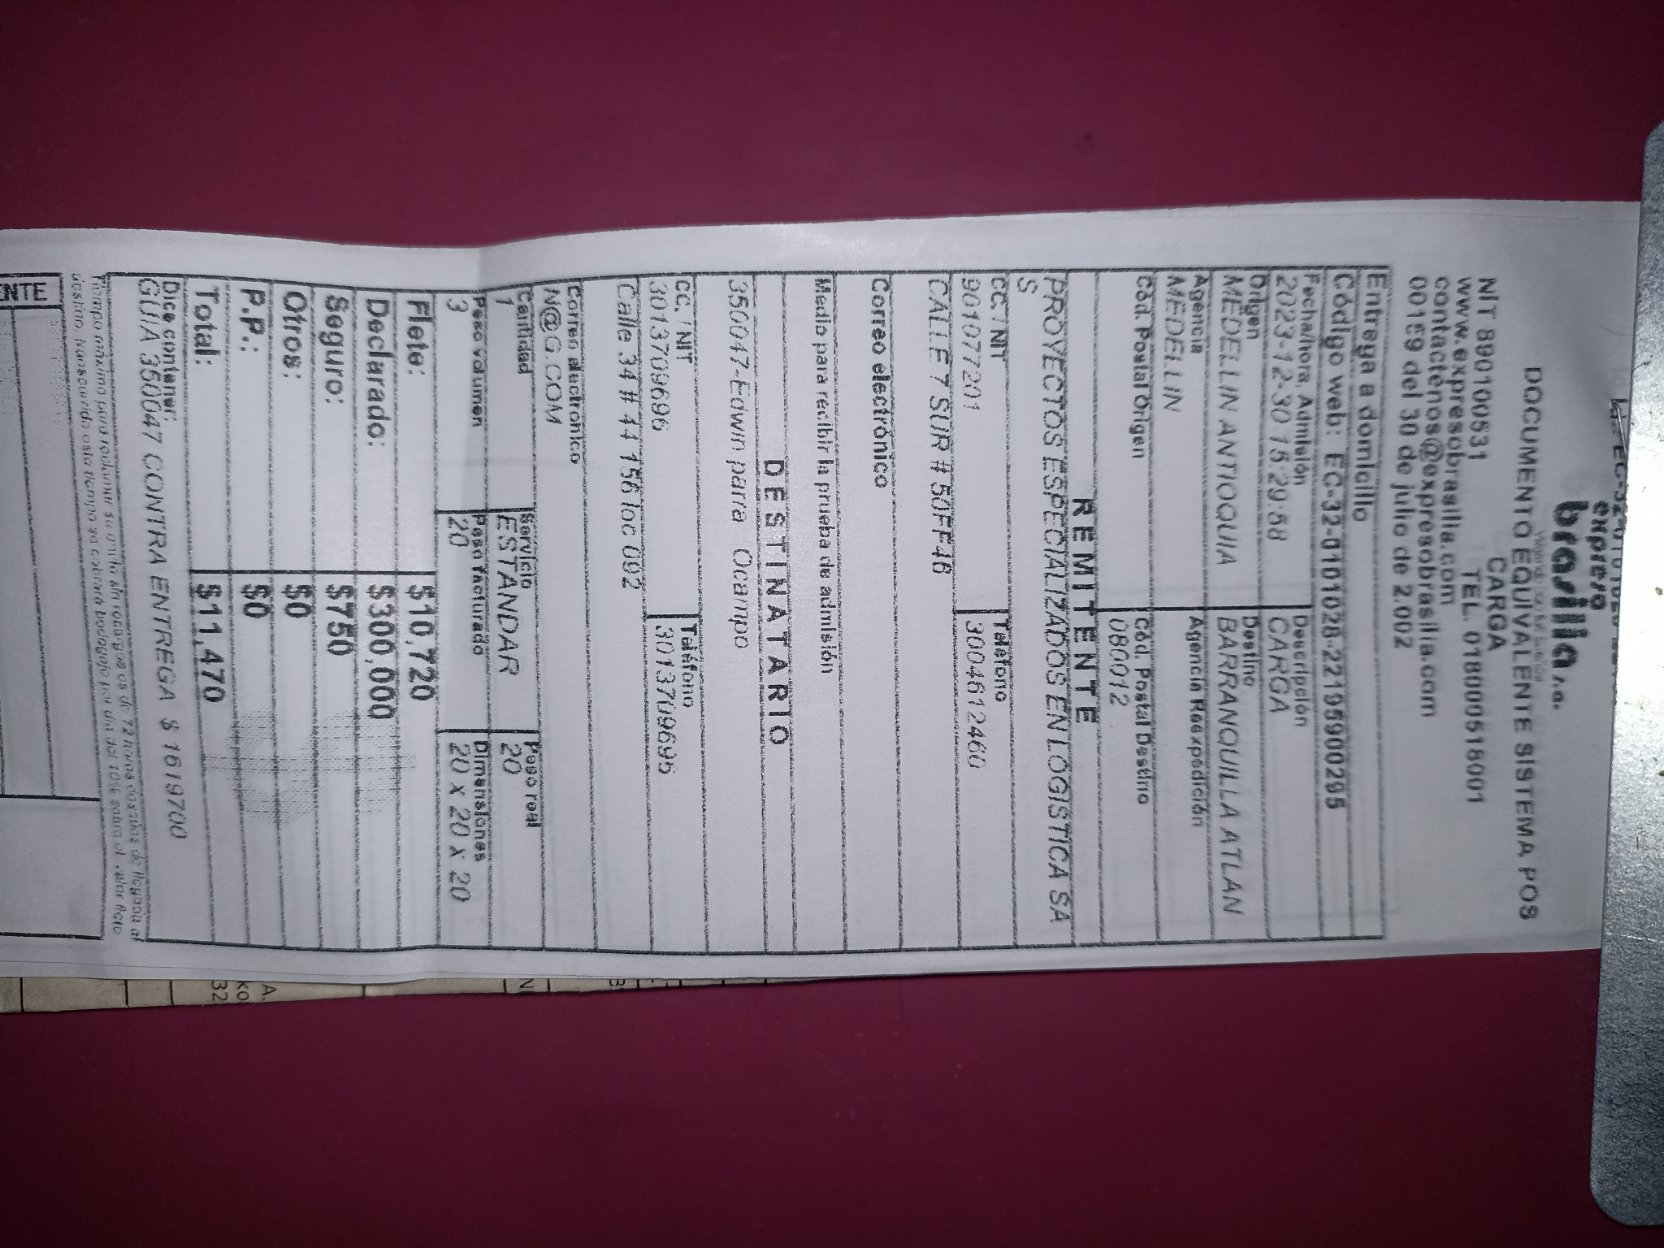 expreso
brasilia s.a.
DOCUMENTO EQUIVALENTE SISTEMA POS
CARGA
NIT 890100531 TEL. 018000518001
www.expresobrasilia.com
contactenos@expresobrasilia.com
00169 del 30 de julio de 2.002
Entrega a domicilio
Código web: EC-32-0101028-22195900295
Fecha/hora Admisión Descripción
2023-12-30 15:29:58 CARGA
Origen Destino
MEDELLIN ANTIOQUIA BARRANQUILLA ATLAN
Agencia Agencia Reexpedición
MEDELLIN
Cód. Postal Origen Cód. Postal Destino
080012
REMITENTE
PROYECTOS ESPECIALIZADOS EN LOGISTICA SA
S
CC. / NIT Teléfono
901077201 3004612460
CALLE 7 SUR # 50FF46
Correo electrónico
Medio para recibir la prueba de admisión
DESTINATARIO
350047-Edwin parra Ocampo
CC. / NIT Teléfono
3013709696 3013709695
Calle 34 # 44 156 loc 092
Correo electronico
N@G.COM
Cantidad Servicio Peso real
1 ESTANDAR 20
Peso volumen Peso facturado Dimensiones
3 20 20 x 20 x 20
Flete: $10,720
Declarado: $300,000
Seguro: $750
Otros: $0
P.P.: $0
Total: $11,470
Dice contener:
GUIA 350047 CONTRA ENTREGA $ 1619700
Tiempo máximo para reclamar su envío sin recargos es de 72 horas después de llegada al
destino, transcurrido este tiempo se cobrará bodegaje por día del 10% sobre el valor flete
ENTE
A.
KO
32